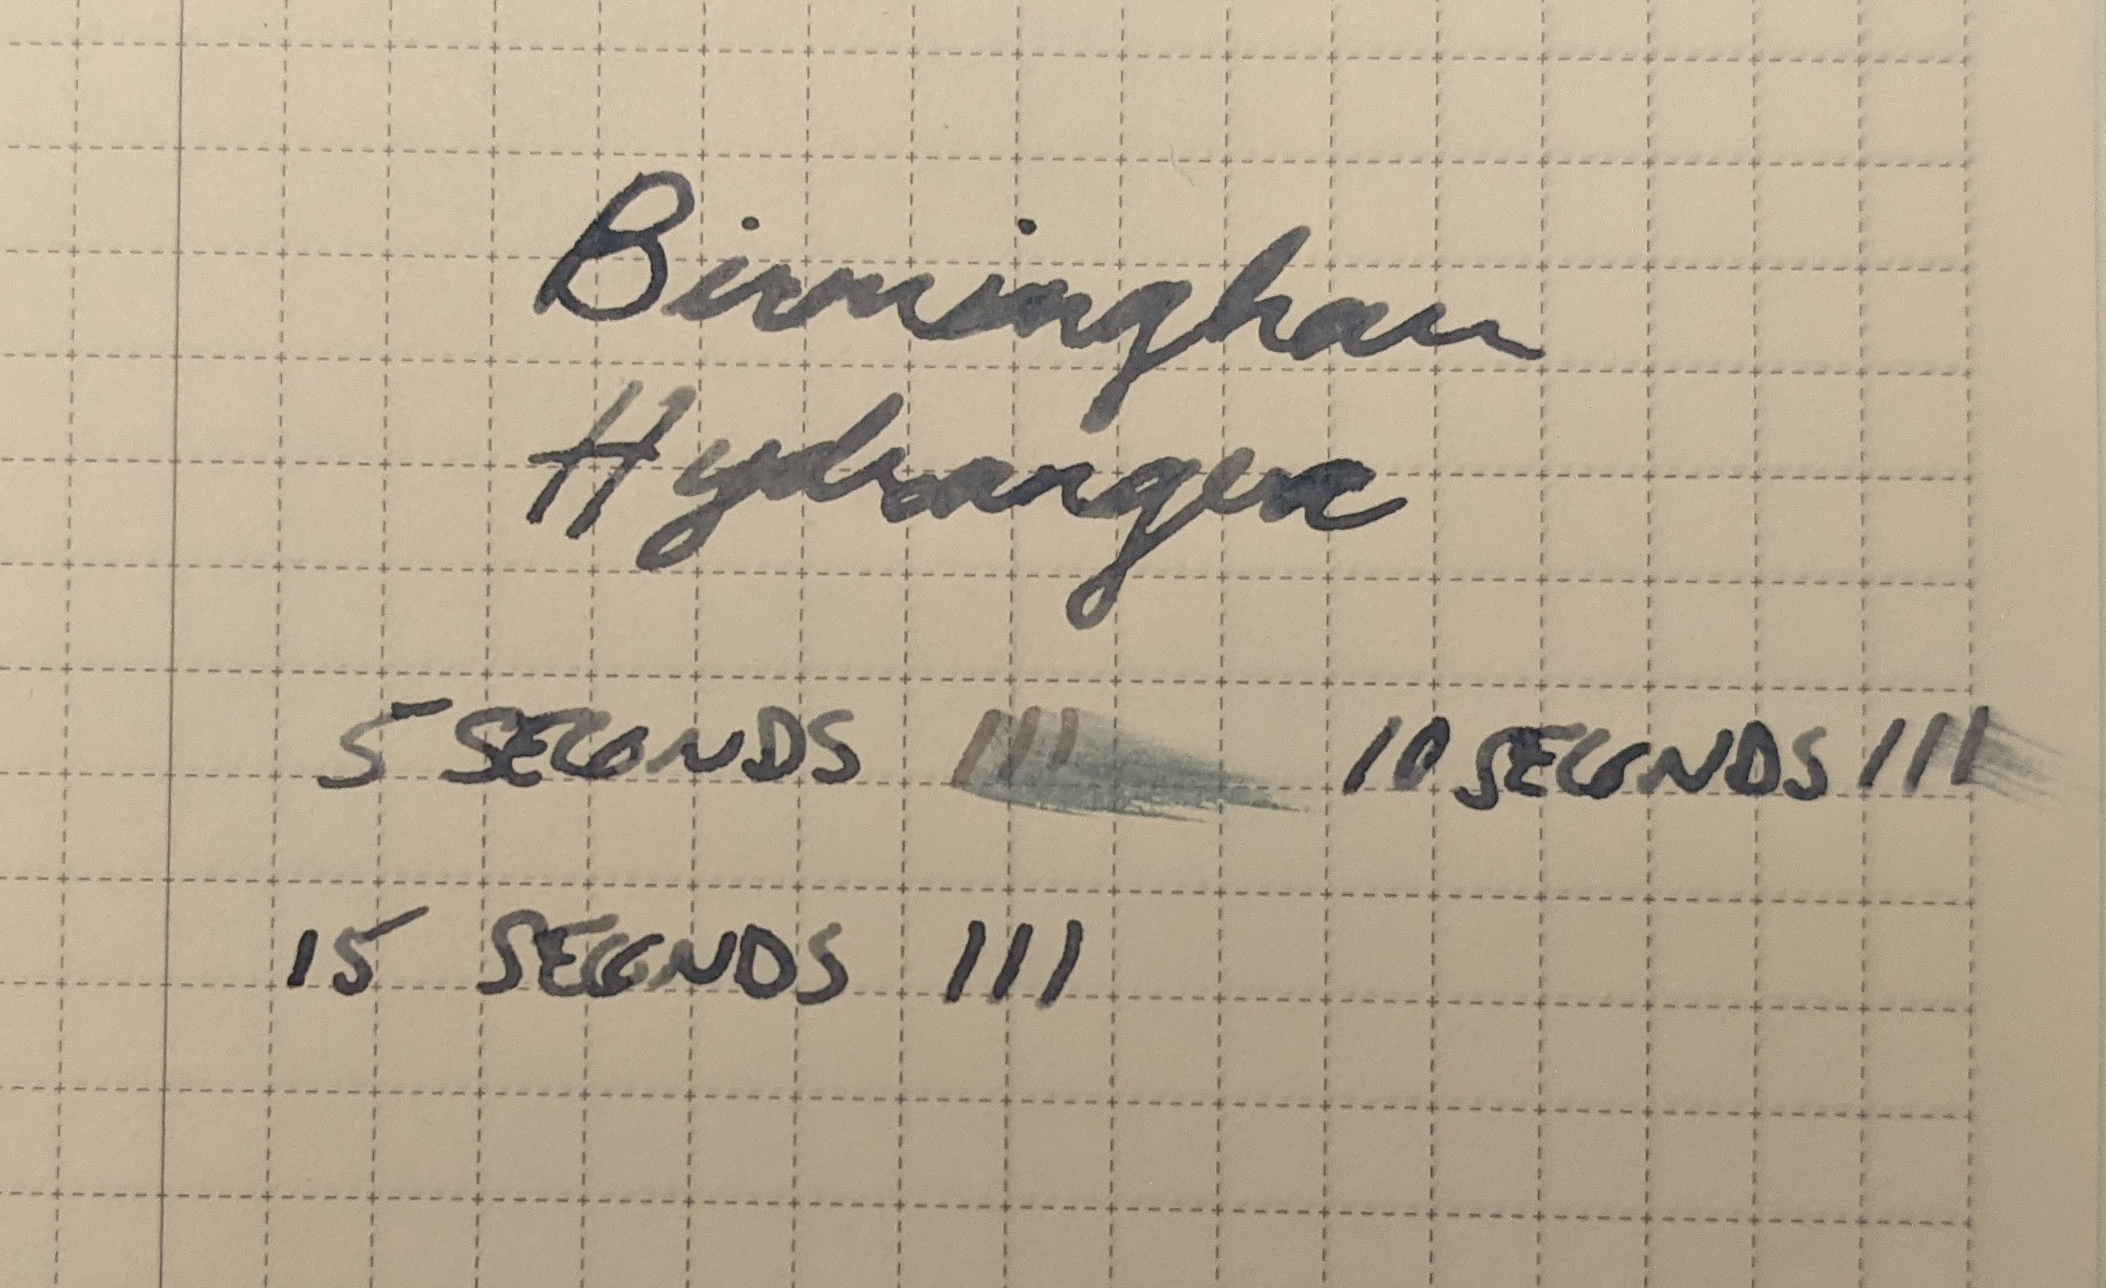 Birmingham
Hydrangea
5 SECONDS III 10 SECONDS III
15 SECONDS III